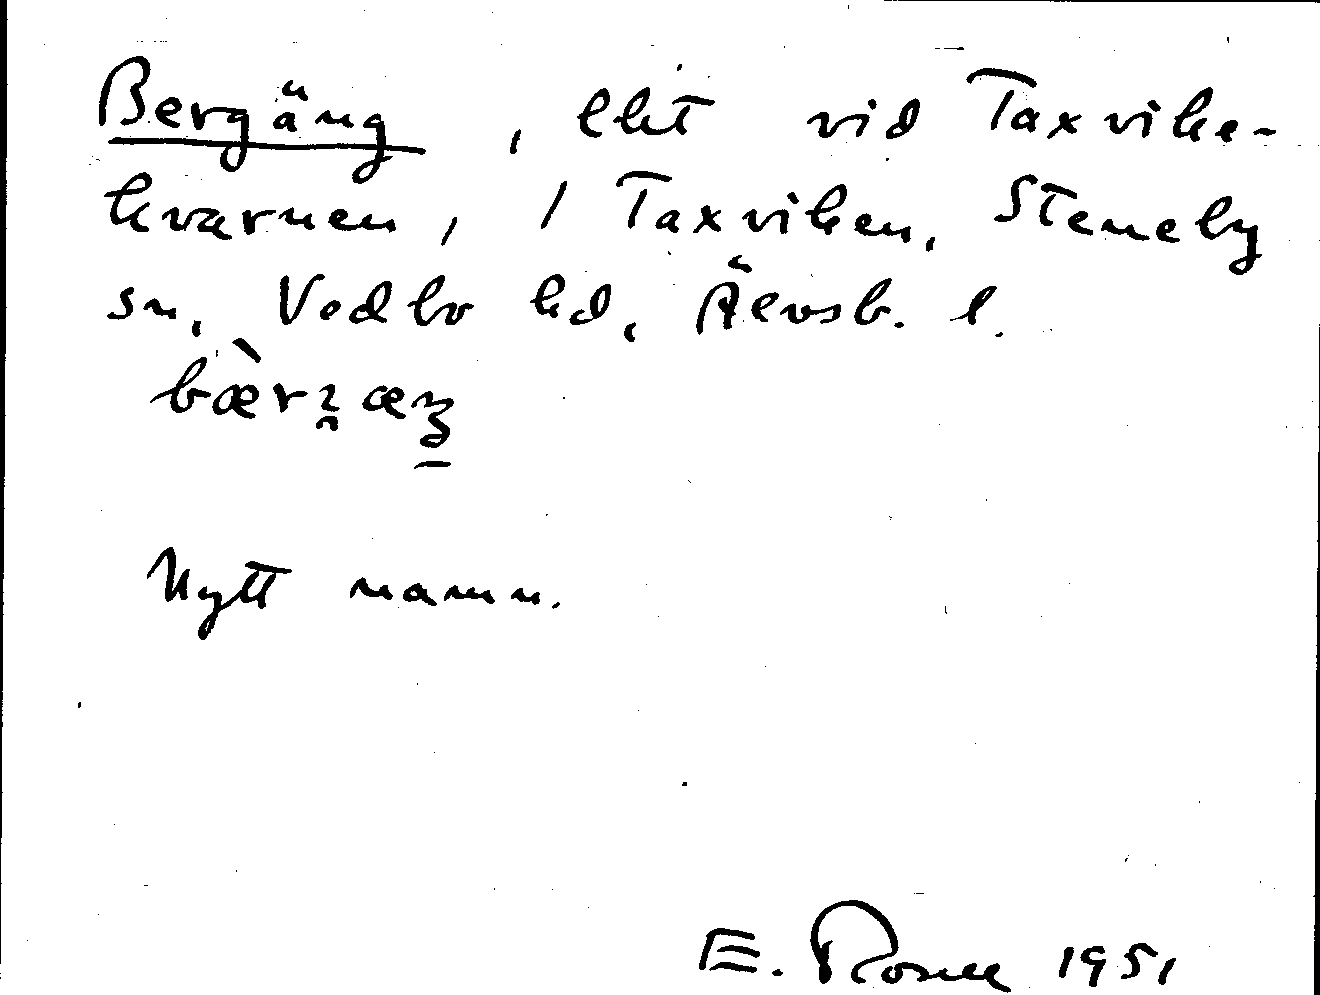 Bergäng, lht vid Taxvike-
kvarnen, 1 Taxviken, Steneby
sn, Vedbo hd, Älvsb. l.
Nytt namn.
E. Rosell 1951